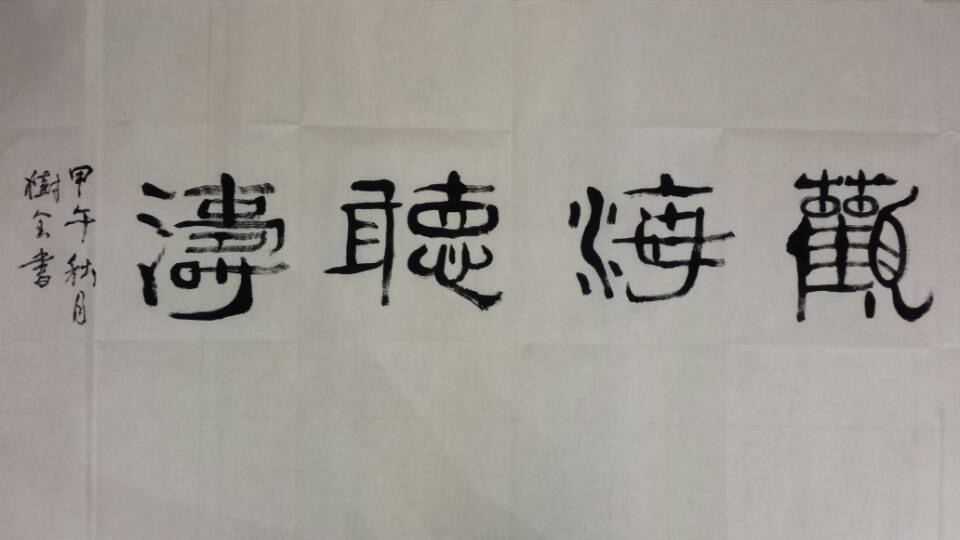 觀海聽濤
甲午秋月
樹全書